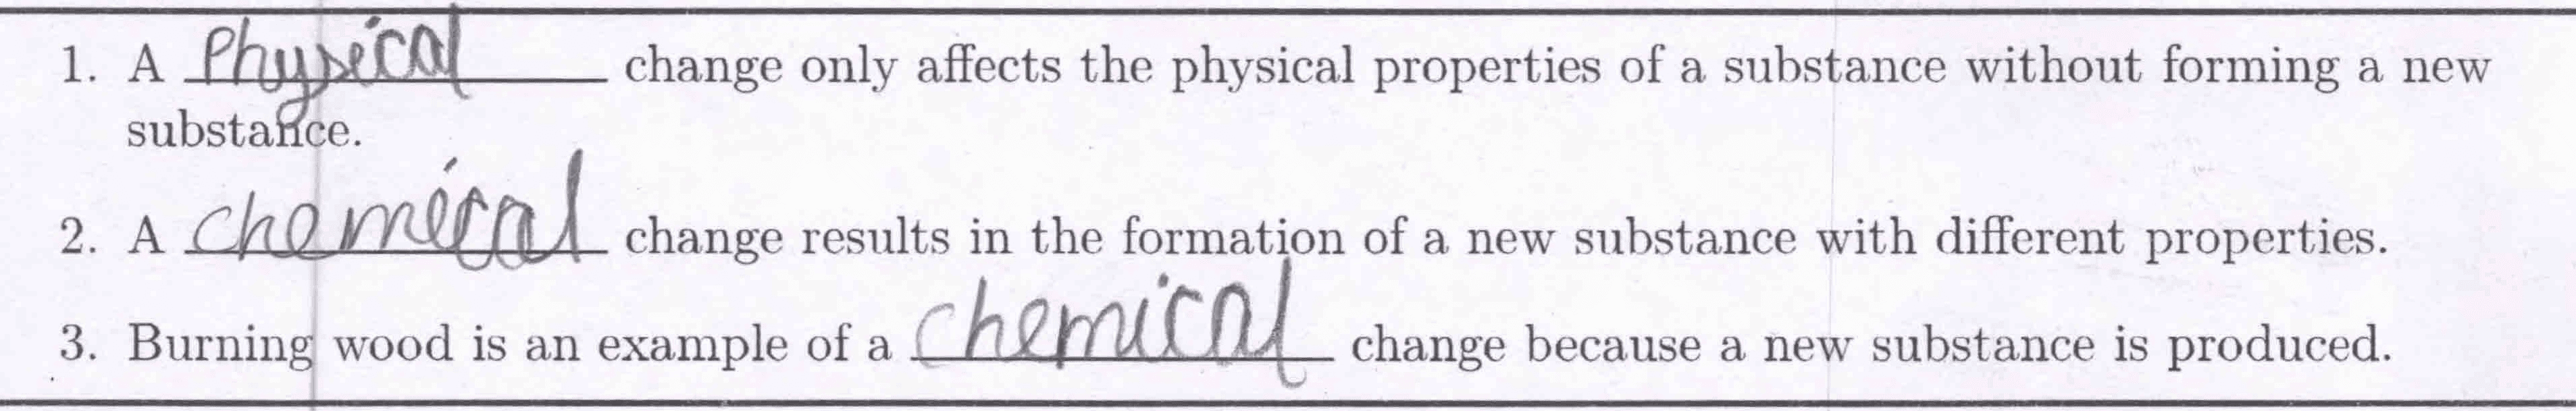 1. A Physical change only affects the physical properties of a substance without forming a new
substance.
2. A chemical change results in the formation of a new substance with different properties.
3. Burning wood is an example of a chemical change because a new substance is produced.